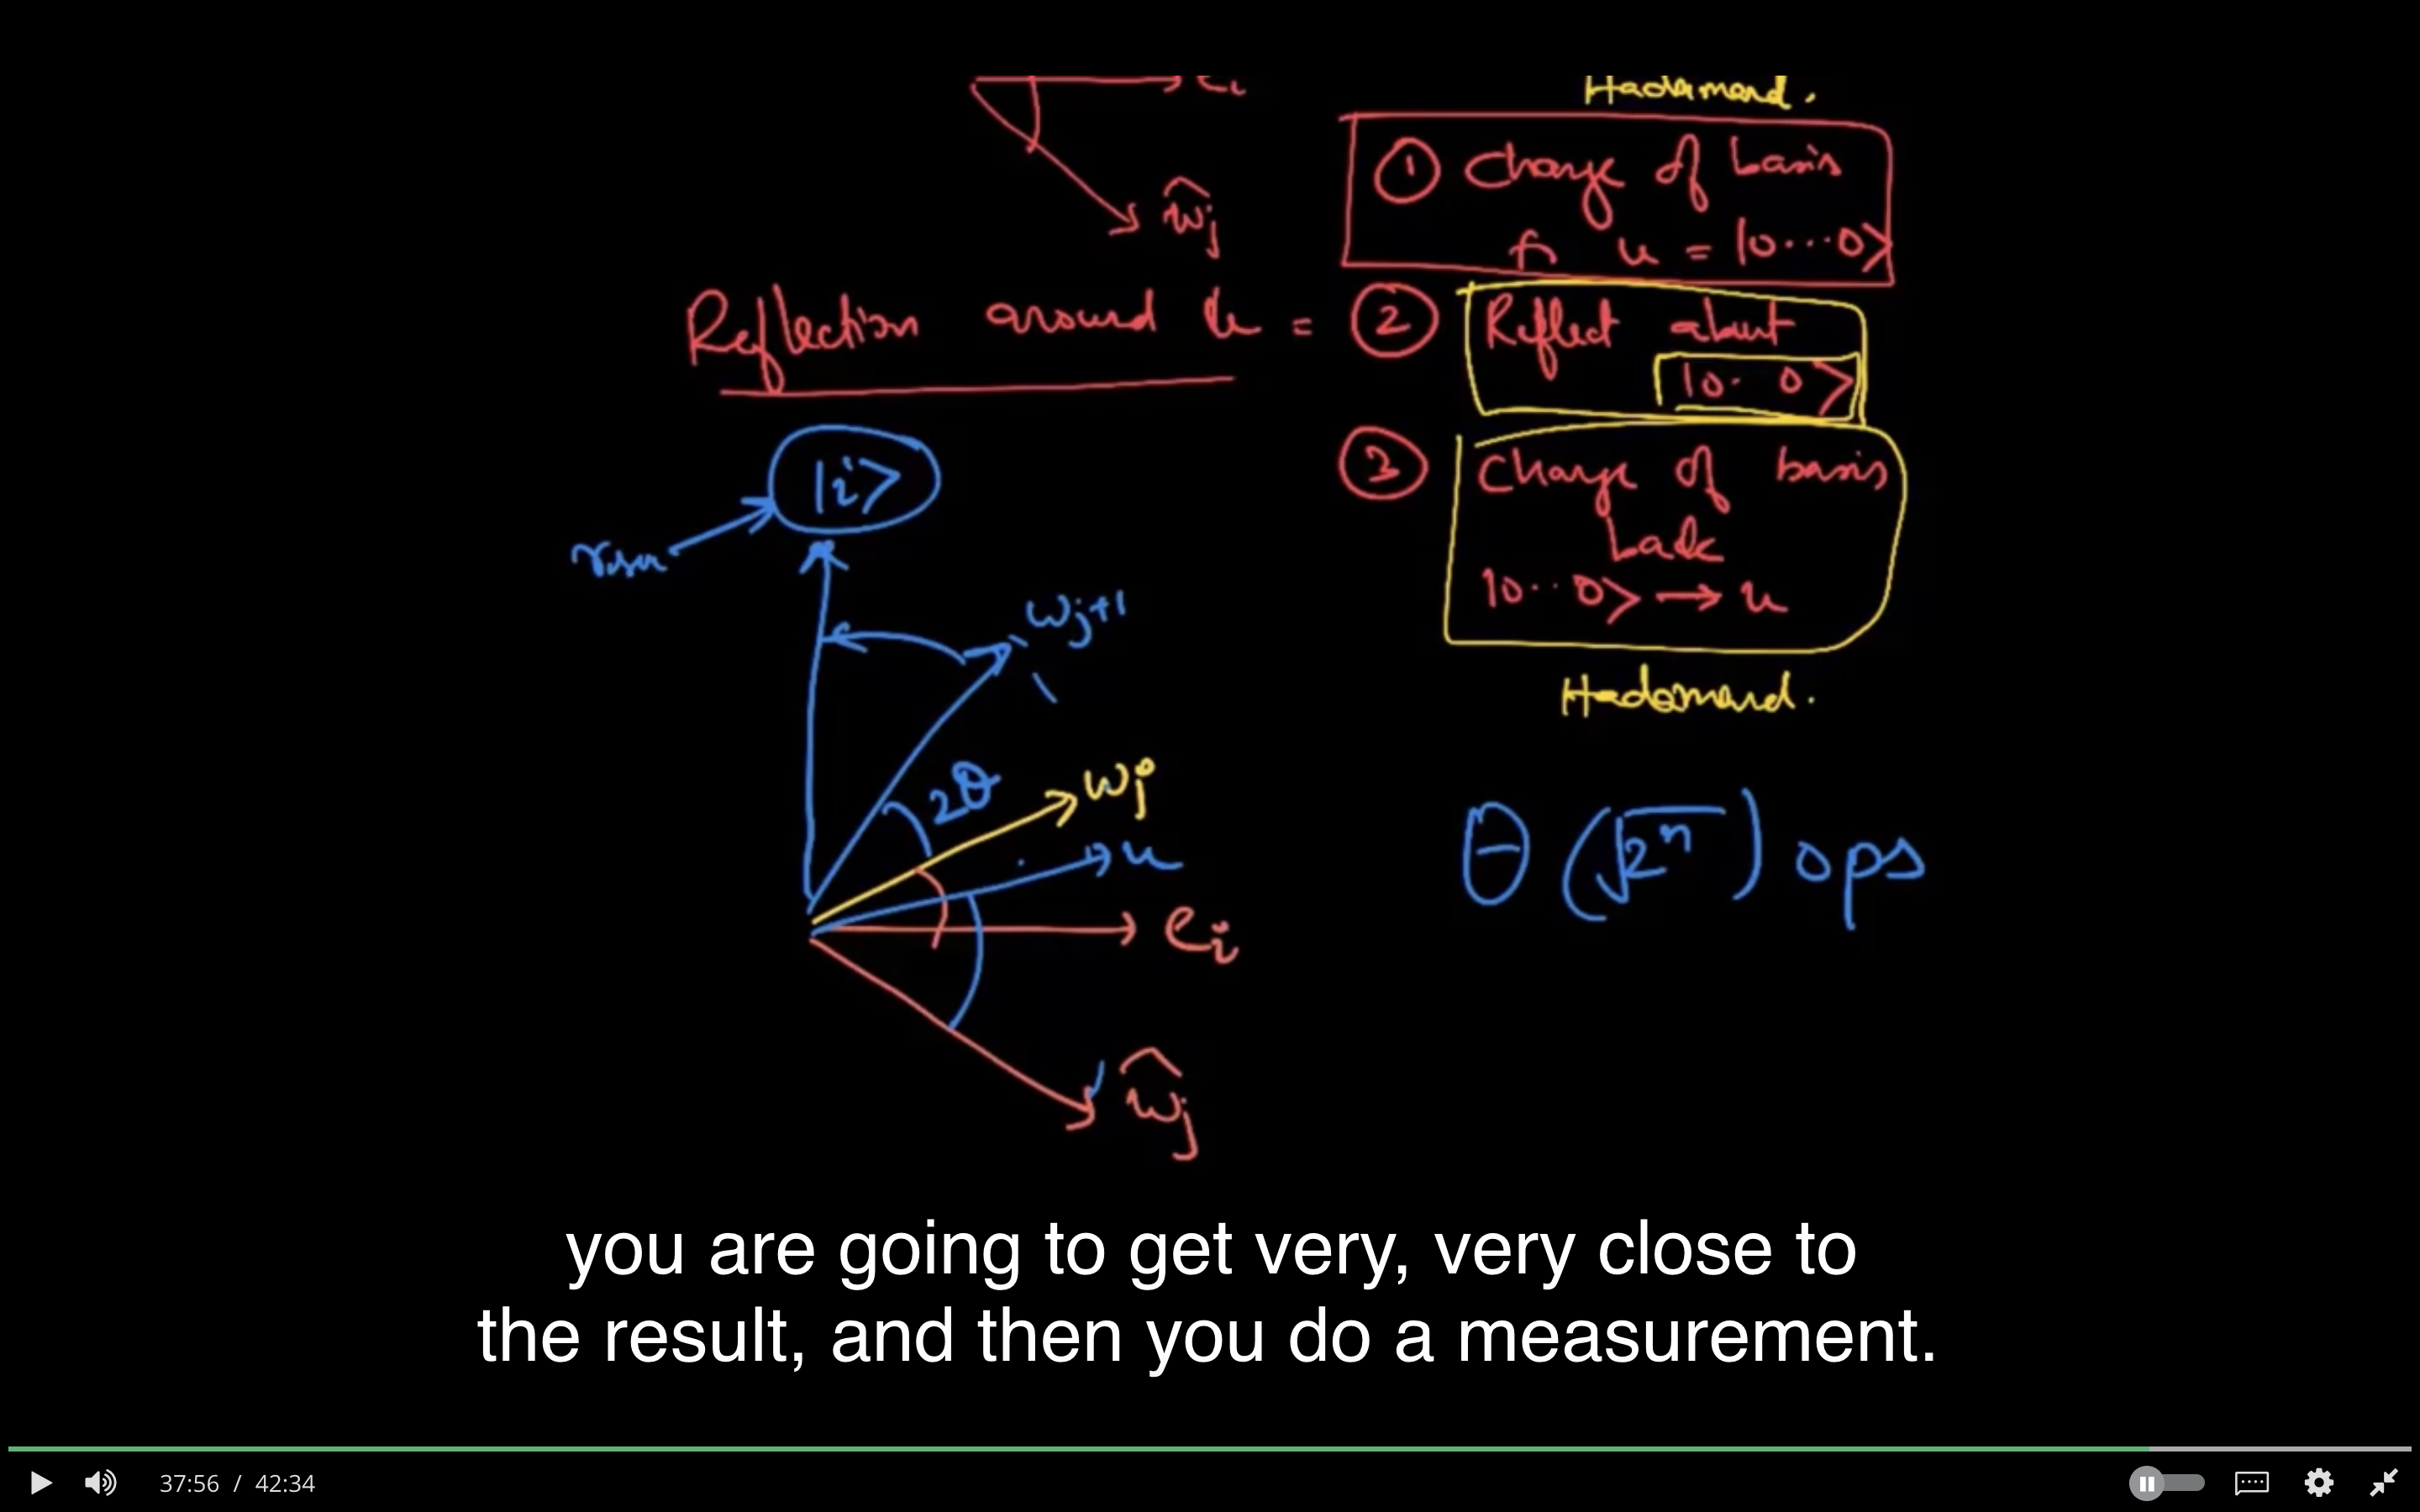 e_i
Hadamard.
ŵ_j
① Change of basis
u = |0...0⟩
Reflection around u = ② Reflect about
|0. 0⟩
|i⟩
③ Change of basis
back
|0...0⟩ → u
w_{j+1}
Hadamard.
2θ
w_j
u
e_i
Θ(√2^n) ops
ŵ_j
you are going to get very, very close to
the result, and then you do a measurement.
37:56 / 42:34